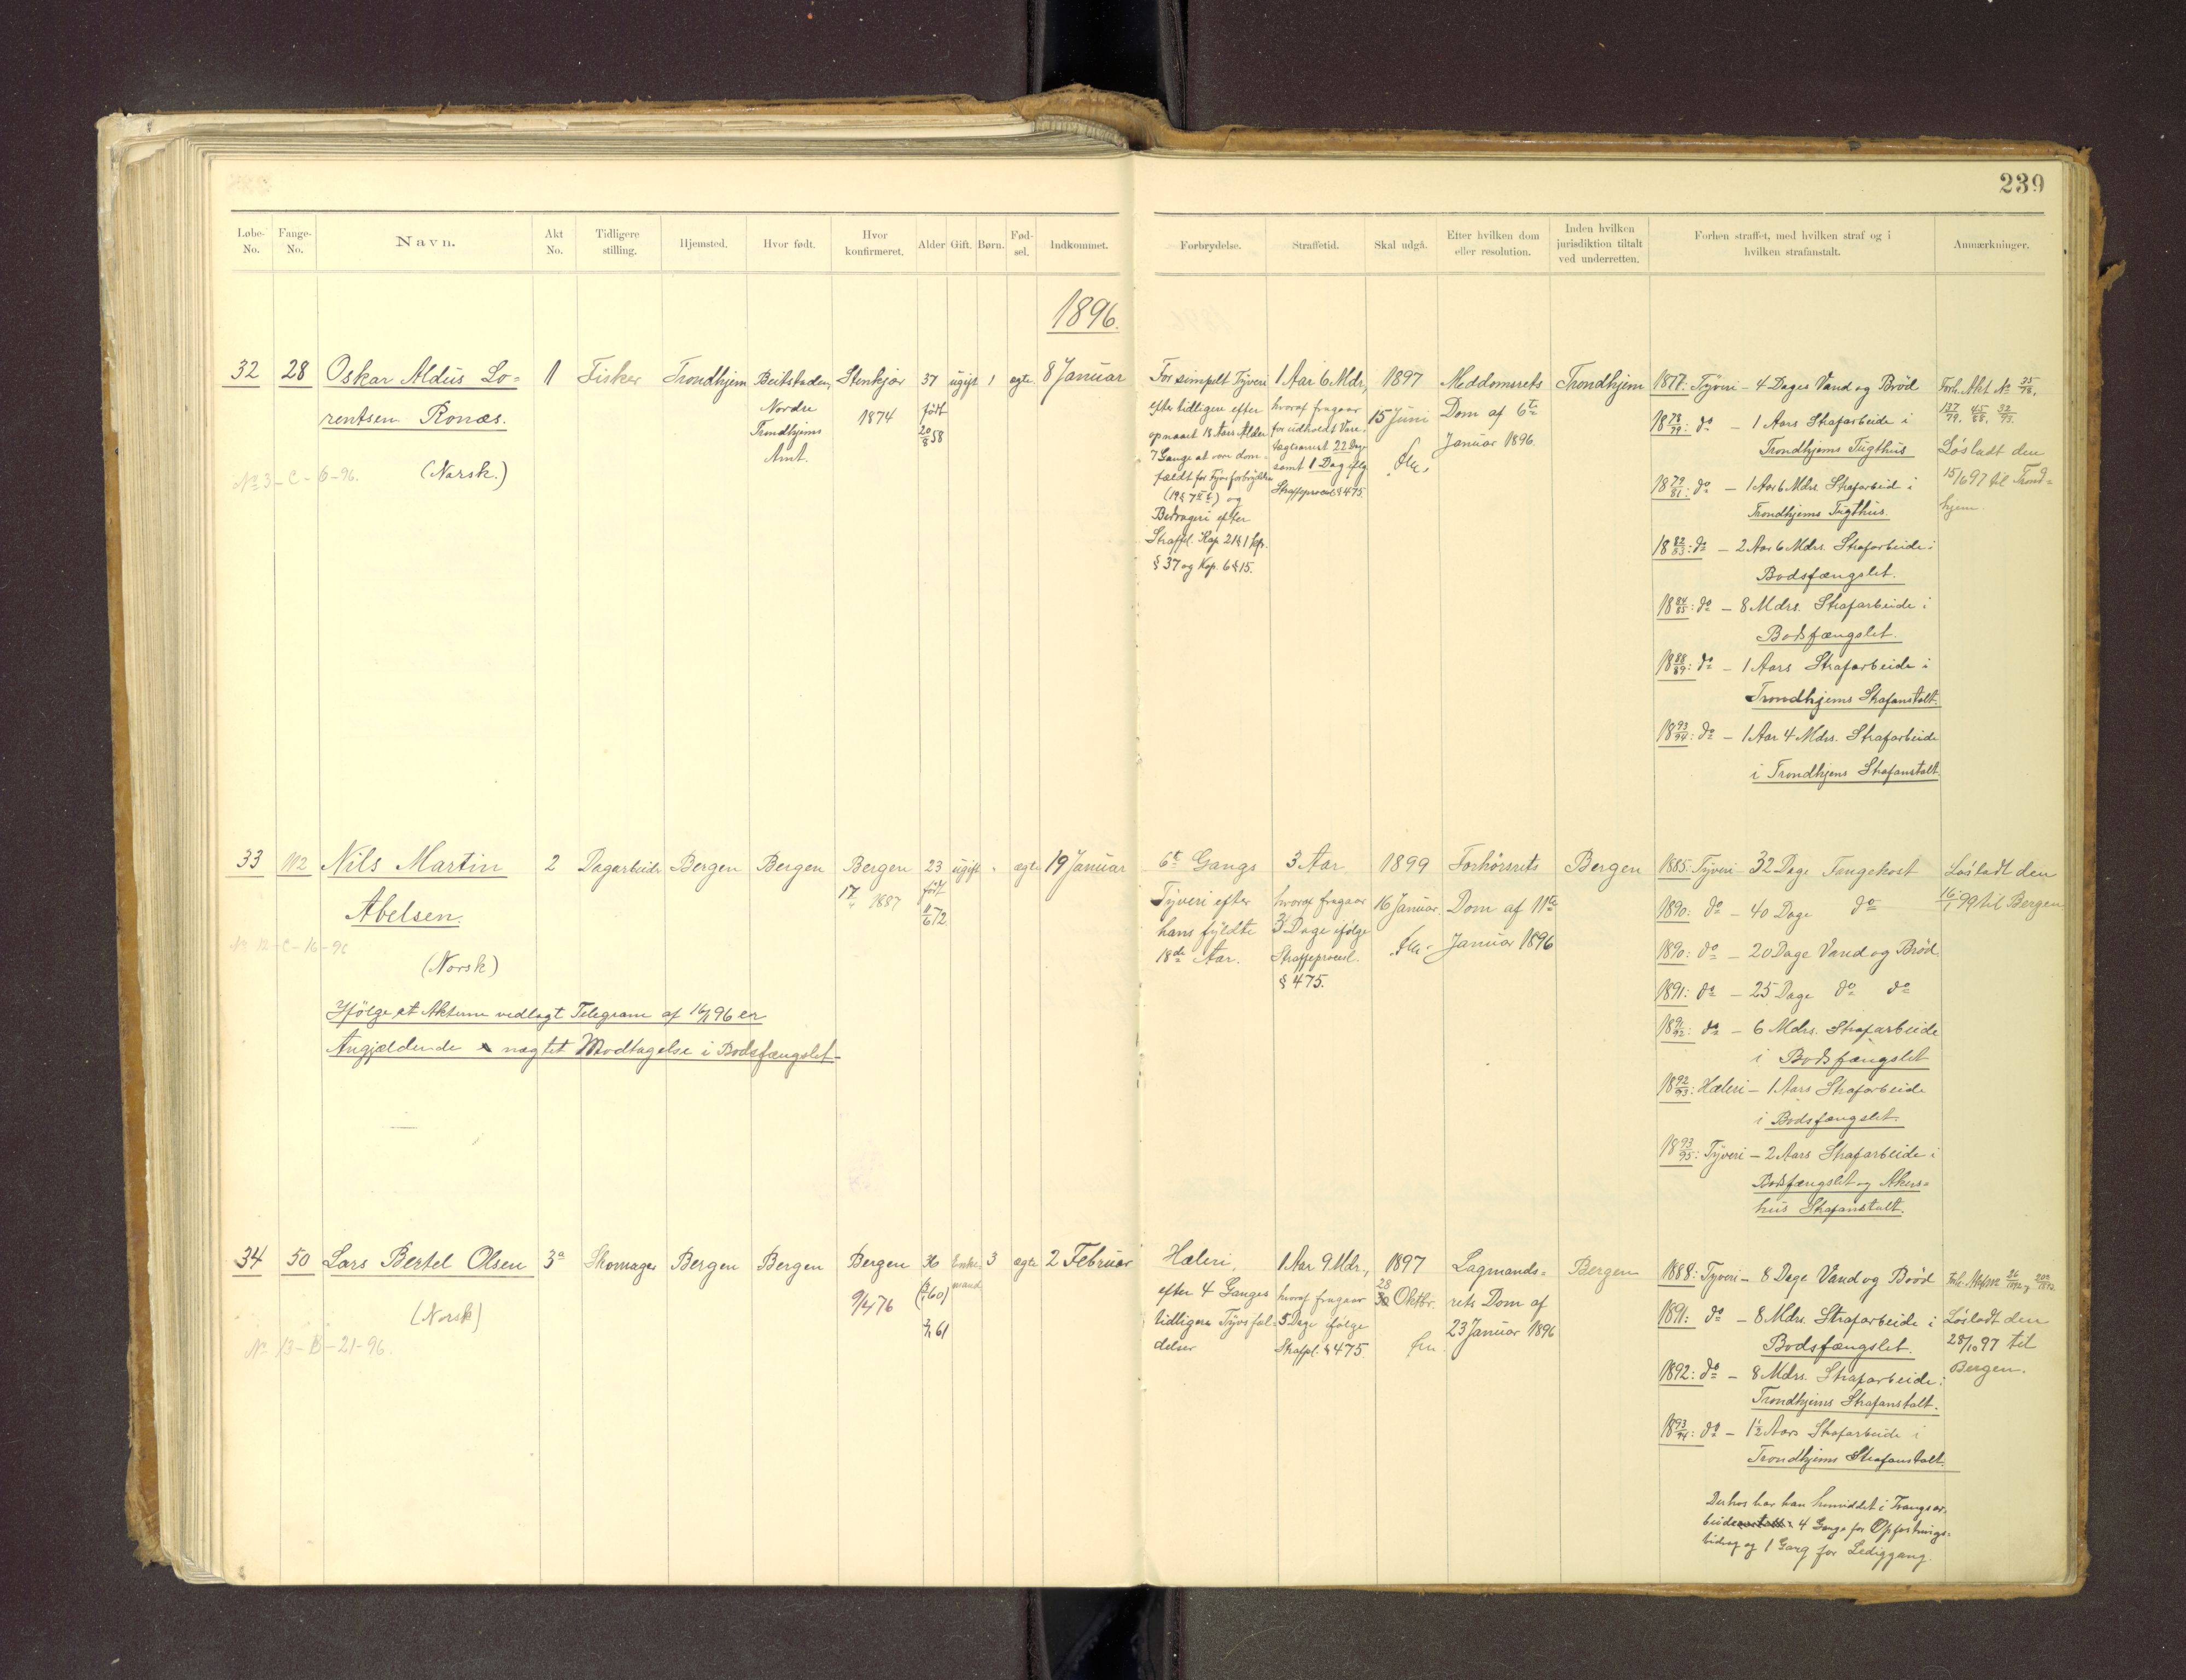 239
Løbe-No. Fange-No. Navn. Akt No. Tidligere stilling. Hjemsted. Hvor født. Hvor konfirmeret. Alder Gift. Børn. Fød-sel. Indkommet. Forbrydelse. Straffetid. Skal udgå. Efter hvilken dom eller resolution. Inden hvilken jurisdiktion tiltalt ved underretten. Forhen straffet, med hvilken straf og i hvilken strafanstalt. Anmærkninger.
1896.
32 28 Oskar Aldus Lo=
rentsen Ronæs.
(Norsk.)
No 3-C-6-96.
1 Fisker Trondhjem Beitstaden,
Nordre
Trondhjems
Amt.
Stenkjær
1874
37
født
20/8 58
ugift 1 ægte 8 Januar
For simpelt Tyveri
efter tidligere efter
opnaaet 18 Aars Alder
7 Gange at være dom-
fældt for Tyvsforbrydelse
(19 § 7 ) og
Bedrageri efter
Straffel. Kap 21 § 1 jfr.
§ 37 og Kap. 6 § 15.
1 Aar 6 Mdr,
hvoraf fragaar
for udholdt Vare-
tægtsarrest 22 Dage
samt 1 Dag iflg
Straffeprocesl. § 475.
1897
15 Juni
Meddomsrets
Dom af 6te
Januar 1896.
Trondhjem
1877: Tyveri - 4 Dages Vand og Brød
1878/79: do - 1 Aars Strafarbeide i
Trondhjems Tugthus
1879/81: do - 1 Aar 6 Mdrs Strafarbeid i
Trondhjems Tugthus.
1882/83: do - 2 Aar 6 Mdrs. Strafarbeide i
Bodsfængslet.
1884/85: do - 8 Mdrs. Strafarbeide i
Bodsfængslet.
1888/89: do - 1 Aars Strafarbeide i
Trondhjems Strafanstalt.
1893/94: do - 1 Aar 4 Mdrs. Strafarbeide
i Trondhjems Strafanstalt
Forh. Akt No 25/78,
137/79, 45/88, 32/93.
Løsladt den
15/6 97 til Trond=
hjem.
33 112 Nils Martin
Abelsen.
(Norsk)
No 12-C-16-96
Ifølge et Akterne vedlagt Telegram af 16/1 96 er
Angjældende nægtet Modtagelse i Bodsfængslet-
2 Dagarbeider Bergen Bergen Bergen
17/4 1887
23
født
11/6 72
ugift " ægte 19 Januar
6te Gangs
Tyveri efter
hans fyldte
18de Aar.
3 Aar
hvoraf fragaar
3 Dage ifølge
Straffeprocesl.
§ 475.
1899
16 Januar.
Forhørsrets
Dom af 11te
Januar 1896
Bergen
1885: Tyveri - 32 Dage Fangekost
1890: do - 40 Dage do
1890: do - 20 Dage Vand og Brød
1891: do - 25 Dage do do
1891/92: do - 6 Mdrs. Strafarbeide
i Bodsfængslet
1892/93: Hæleri - 1 Aars Strafarbeide
i Bodsfængslet.
1893/95: Tyveri - 2 Aars Strafarbeide i
Bodsfængslet og Akers=
hus Strafanstalt.
Løsladt den
16/1 99 til Bergen
34 50 Lars Bertel Olsen
(Norsk)
No 13-B-21-96.
3a Skomager Bergen Bergen Bergen
9/4 76
36
Enke-
mand
3 ægte 2 Februar
Hæleri,
efter 4 Ganges
tidligere Tyvsfæl=
delser
1 Aar 9 Mdr.,
hvoraf fragaar
5 Dage ifølge
Straffpl. § 475.
1897
28
30 Oktbr.
Lagmands=
rets Dom af
23 Januar 1896
Bergen
1888: Tyveri - 8 Dage Vand og Brød
1891: do - 8 Mdrs. Strafarbeide i
Bodsfængslet.
1892: do - 8 Mdrs. Strafarbeide i
Trondhjems Strafanstalt.
1893/94: do - 1½ Aars Strafarbeide i
Trondhjems Strafanstalt.
Derhos har han hensiddet i Tvangsar-
beide 4 Gange for Opfostrings-
bidrag og 1 Gang for Lediggang.
Løsladt den
28/10 97 til
Bergen.